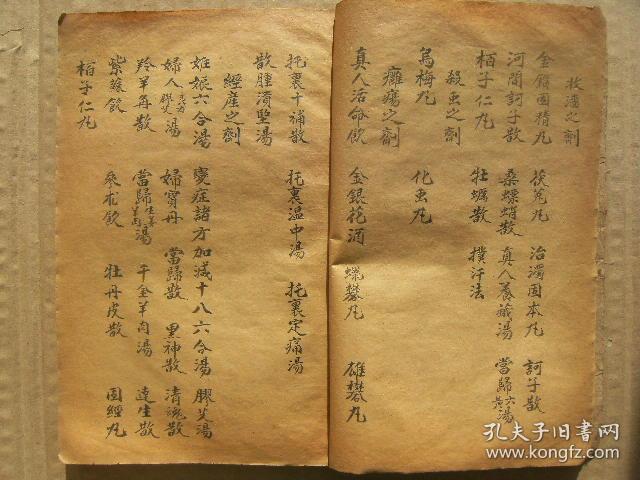 收濇之劑
金鎖固精丸 茯菟丸 治濁固本丸 訶子散
河間訶子散 桑螵蛸散 真人養藏湯 當歸六黃湯
栢子仁丸 牡蠣散 撲汗法
殺虫之劑
烏梅丸 化虫丸
癰瘍之劑
真人活命飲 金銀花酒 蠟礬丸 雄礬丸
托裏十補散 托裏溫中湯 托裏定痛湯
散腫潰堅湯
經產之劑
妊娠六合湯 變症諸方加减十八六合湯 膠艾湯
婦人膠艾湯 婦寶丹 當歸散 黑神散 清魂散
羚羊角散 當歸生姜羊肉湯 千金羊肉湯 達生散
紫蘇飲 參朮飲 牡丹皮散 固經丸
栢子仁丸
孔夫子旧书网